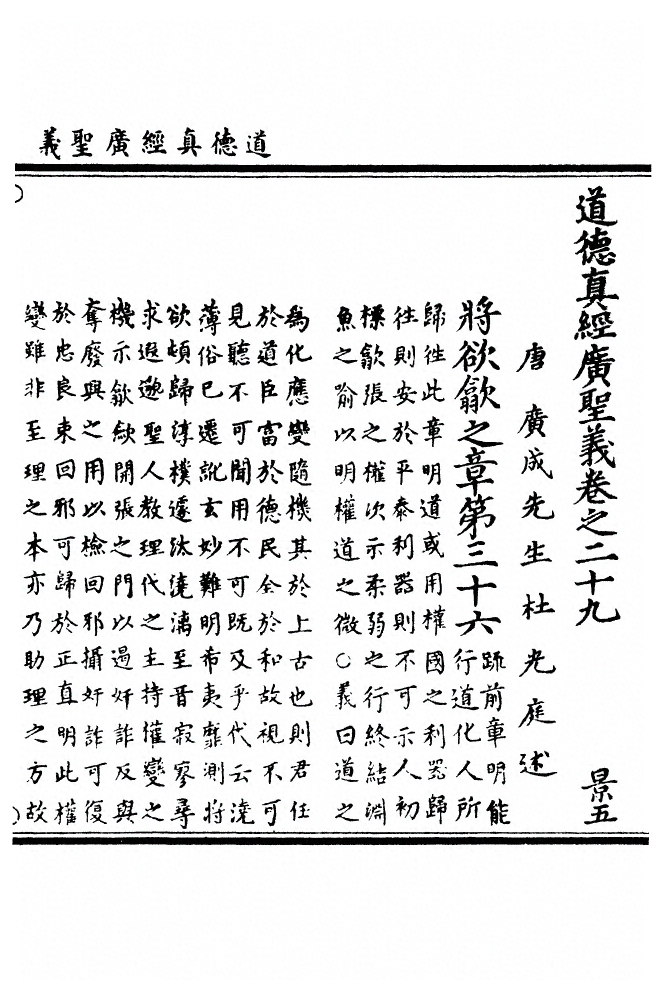 道德真經廣聖義
道德真經廣聖義卷之二十九 景五
唐廣成先生杜光庭述
將欲歙之章第三十六
䟽前章明能
行道化人所
歸往此章明道或用權國之利器歸
往則安於平泰利器則不可示人初
標歙張之權次示柔弱之行終結淵
魚之喻以明權道之微○義曰道之
為化應變隨機其於上古也則君任
於道臣富於德民全於和故視不可
見聽不可聞用不可既及乎代云澆
薄俗已遷訛玄妙難明希夷靡測將
欲頓歸淳樸遽汰澆漓至音寂寥尋
求遐邈聖人教理代之主持權變之
機示歙歘開張之門以遏奸詐反與
奪廢興之用以檢回邪攝奸詐可復
於忠良束回邪可歸於正直明此權
變雖非至理之本亦乃助理之方故